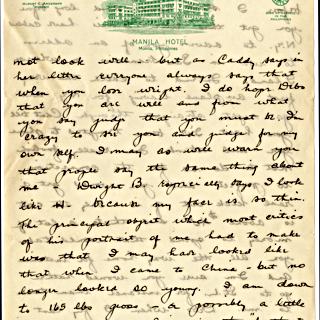 MANILA HOTEL
Manila, Philippines
not look well - but as Caddy says in
her letter everyone always says that
when you lose weight. I do hope Debo
that you are well and from what
you say judge that you must be. I'm
crazy to see you and judge for my
own self. I may as well warn you
that people say the same thing about
me. Dwight B. especially says I look
like H- because my face is so thin.
The principal object which most critics
of his portrait of me had to make
was that I may have looked like
that when I came to China but no
longer looked so young. I am down
to 165 lbs gross, or possibly a little